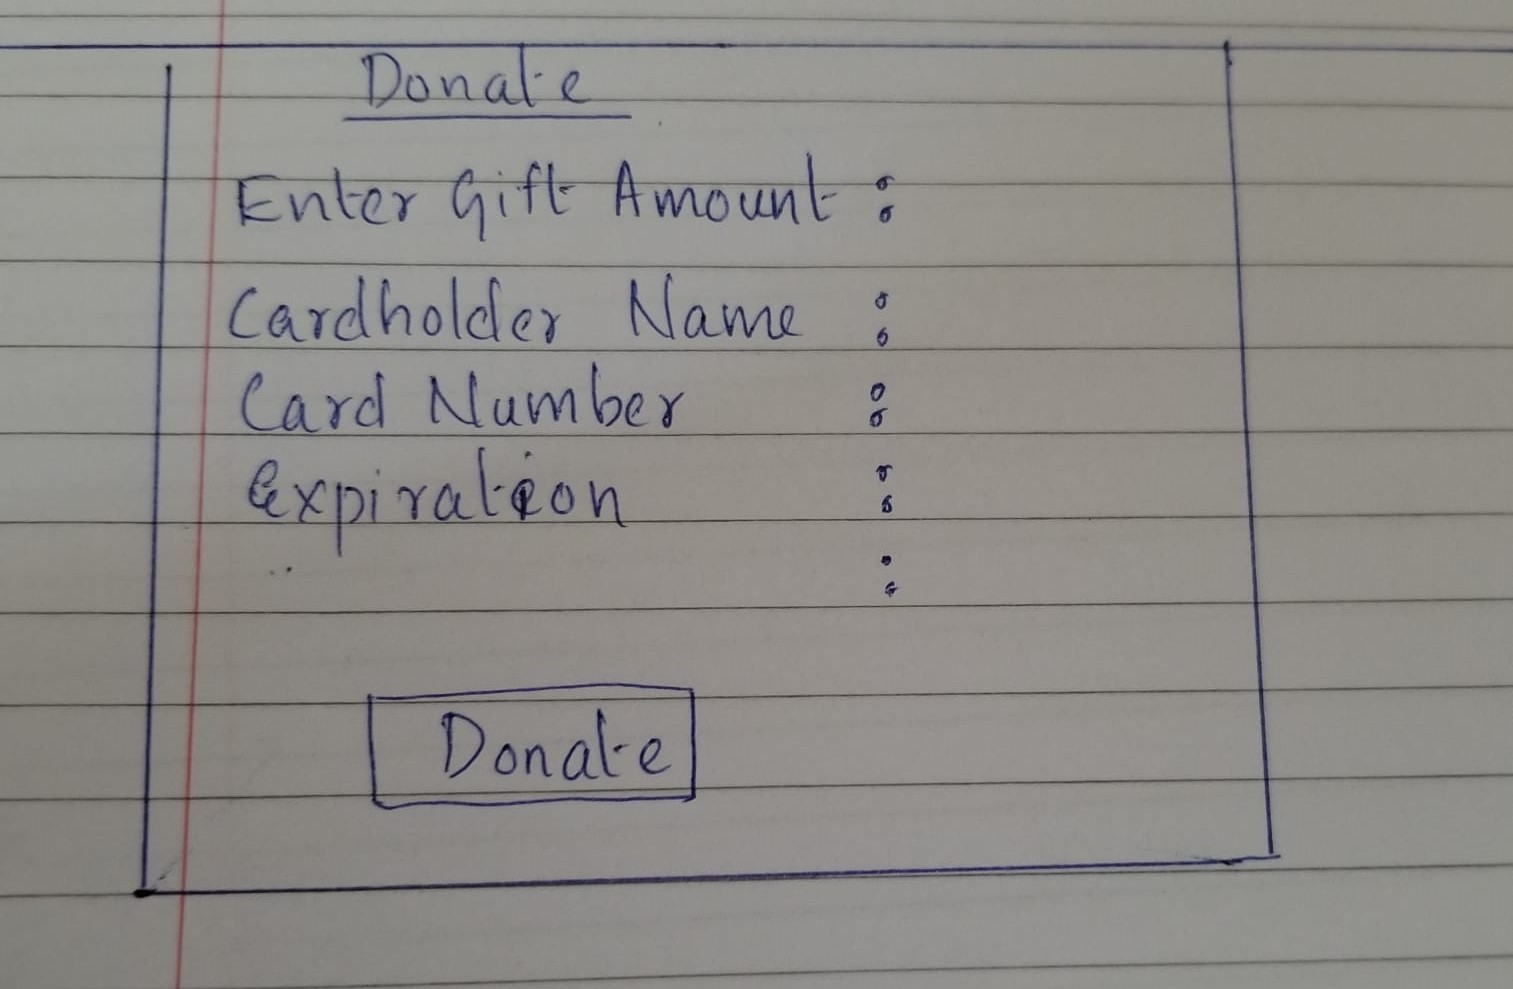 Donate
Enter Gift Amount :
Cardholder Name :
Card Number :
Expiration :
:
Donate